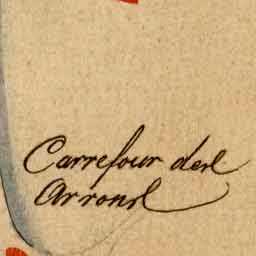 Carrefour des
Arrons